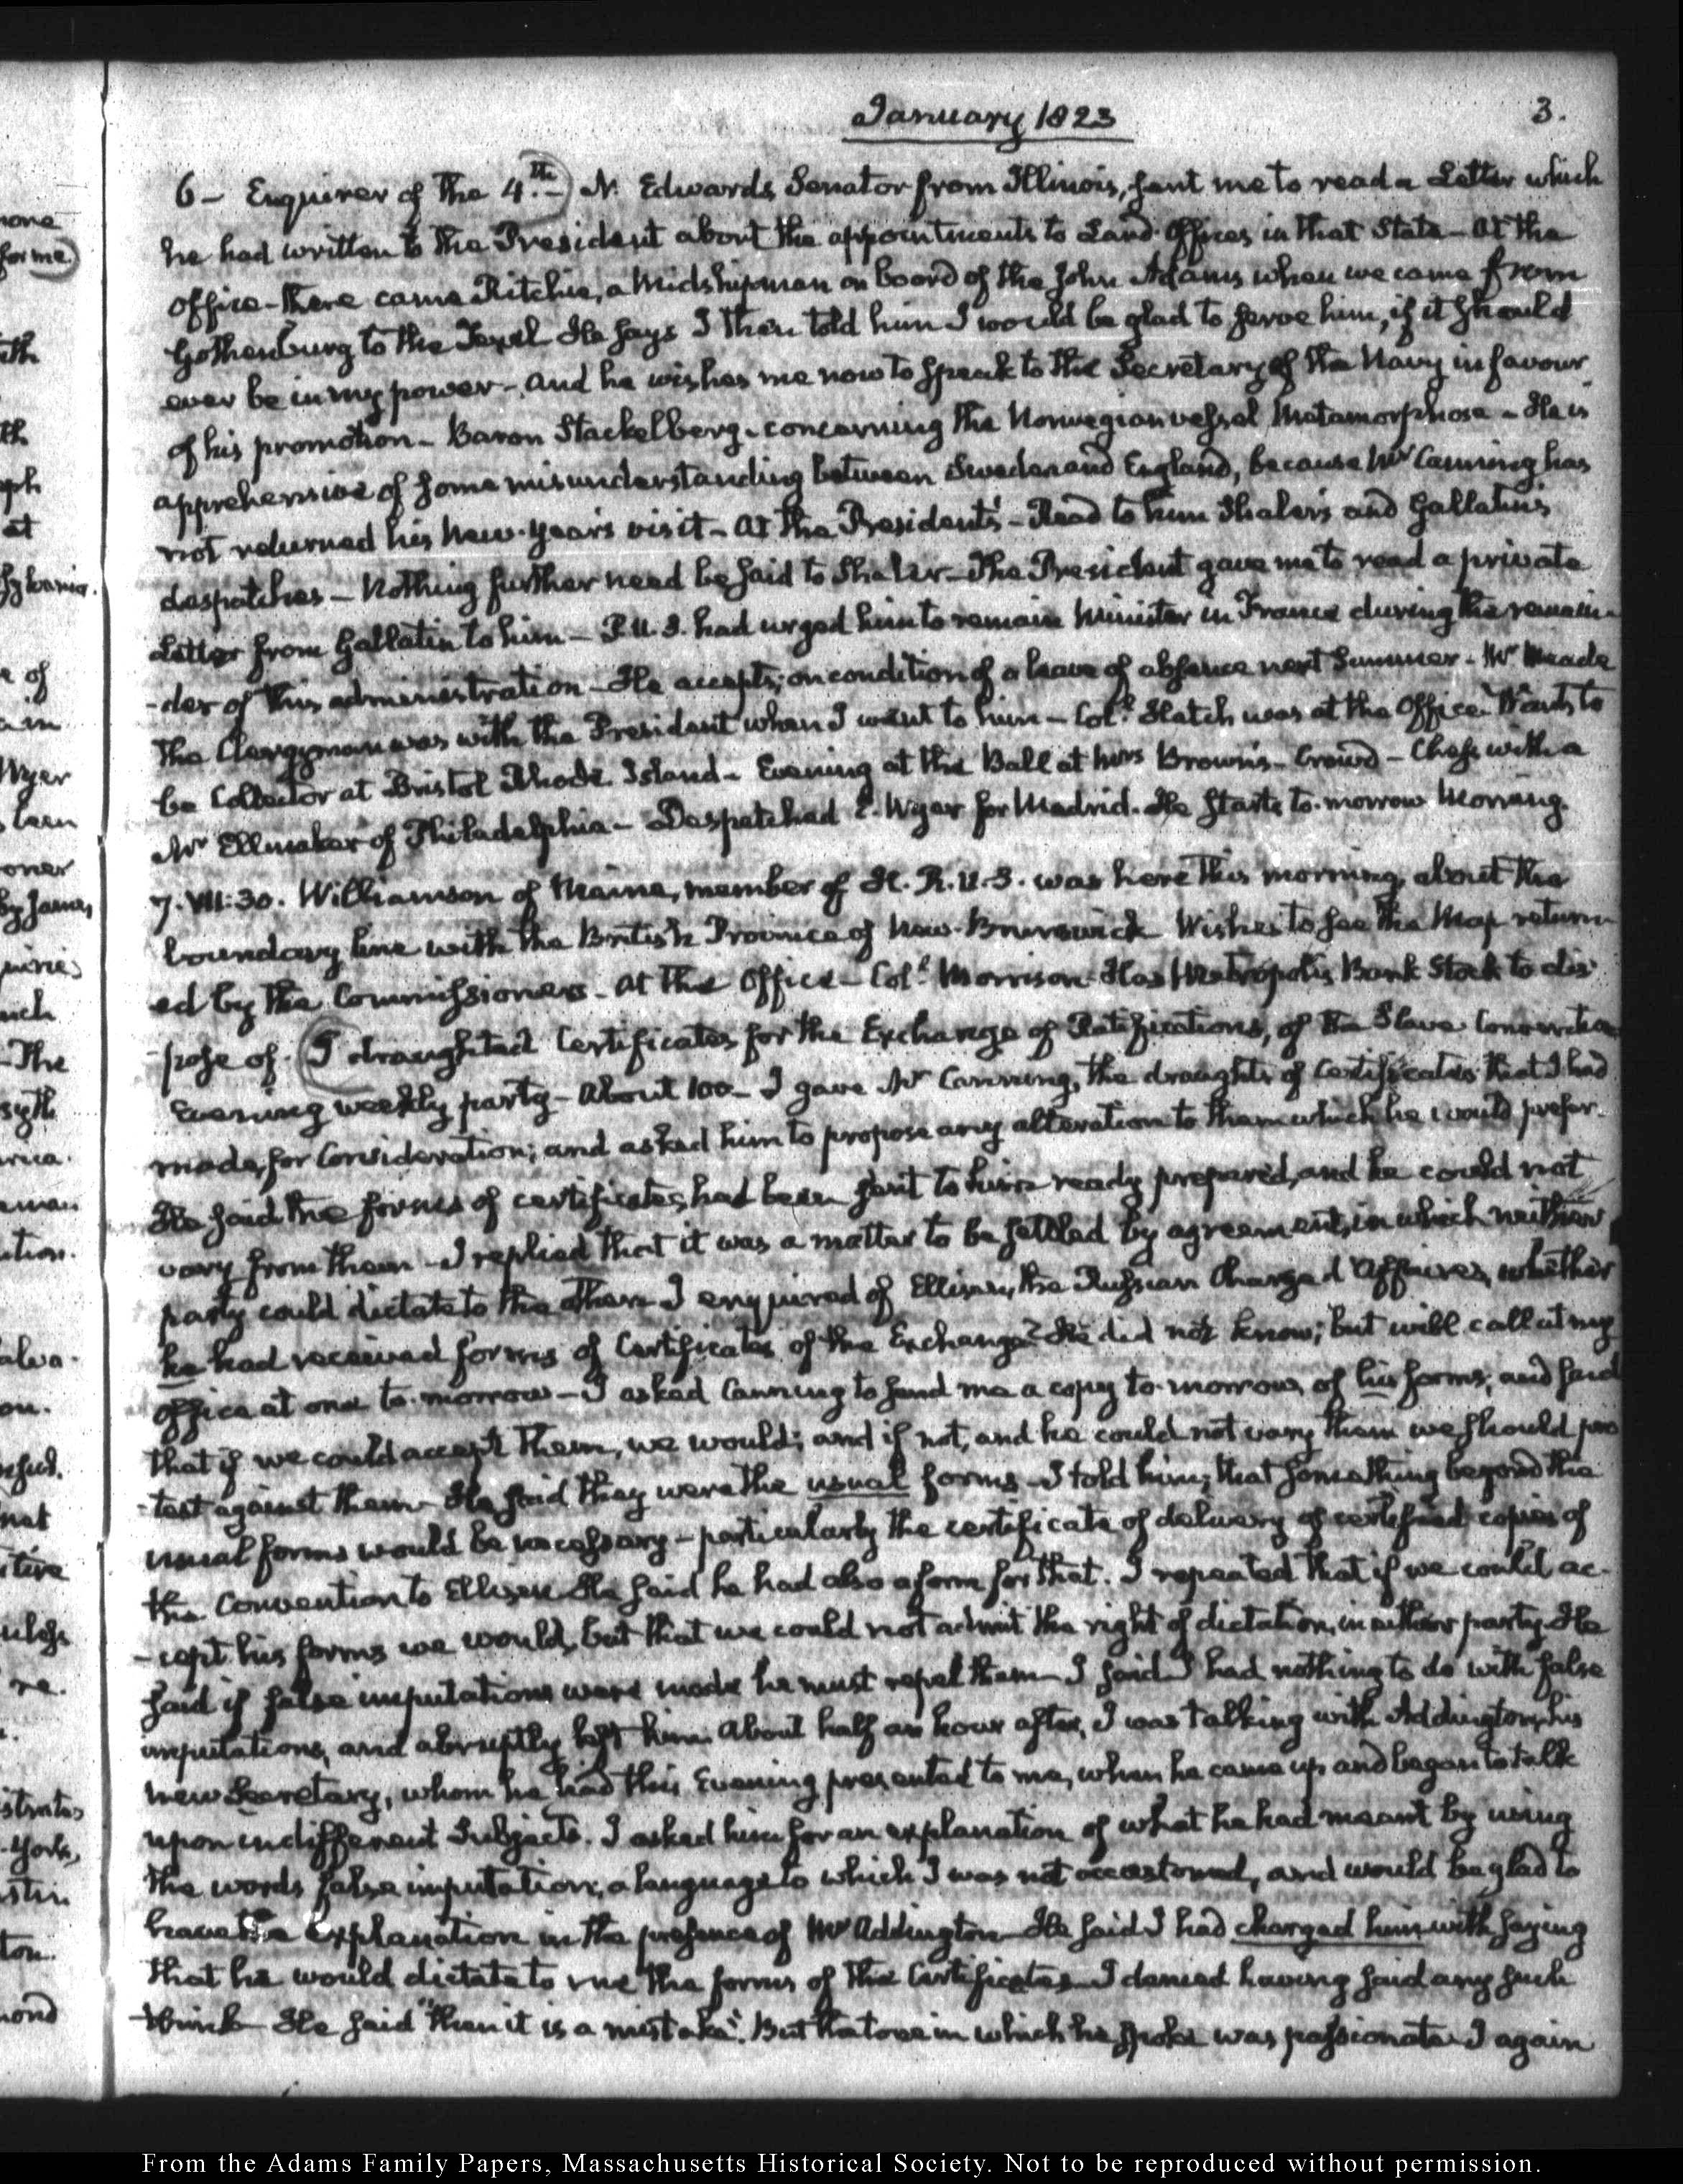 January 1823
3.
6 - Enquirer of the 4.th) N. Edwards, Senator from Illinois, sent me to read a Letter which
he had written to the President about the appointments to Land-Offices in that State - At the
office - there came Ritchie, a Midshipman on board of the John Adams when we came from
Gothenburg to the Texel He says I then told him I would be glad to serve him, if it should
ever be in my power - and he wishes me now to speak to the Secretary of the Navy in favour
of his promotion - Baron Stackelberg - concerning the Norwegian vessel Metamorphose - He is
apprehensive of some misunderstanding between Sweden and England, because Mr Canning has
not returned his New-Year's visit - At the President's - Read to him Shaler's and Gallatin's
despatches - Nothing further need be said to Shaler - The President gave me to read a private
Letter from Gallatin to him - P.U.S. had urged him to remain Minister in France during the remain-
-der of this administration - He accepts, on condition of a leave of absence next Summer - Mr Meade
the Clergyman was with the President when I went to him - Col.l Hatch was at the Office. Wants to
be Collector at Bristol Rhode Island - Evening at the Ball at Mrs Brown's - Crowd - Chess with a
Mr Ellmaker of Philadelphia - Despatched E. Wyer for Madrid. He starts to-morrow Morning.
7. VII:30. Williamson of Maine, member of H. R. U. S. was here this morning, about the
boundary line with the British Province of New-Brunswick Wishes to see the Map return-
ed by the Commissioners - At the Office - Col.l Morrison - Has Metropolis Bank Stock to dis-
-pose of. (I draughted Certificates for the Exchange of Ratifications, of the Slave Convention
Evening weekly party - About 100 - I gave Mr Canning, the draughts of Certificates that I had
made, for Consideration; and asked him to propose any alteration to them which he would prefer.
He said the forms of certificates, had been sent to him ready prepared, and he could not
vary from them - I replied that it was a matter to be settled by agreement, in which neither
party could dictate to the other I enquired of Ellisen, the Russian Chargé d'Affaires, whether
he had received forms of Certificates of the Exchange? He did not know; but will call at my
office at one to-morrow - I asked Canning to send me a copy to-morrow, of his forms, and said
that if we could accept them, we would; and if not, and he could not vary them we should pro
-test against them - He said they were the usual forms - I told him, that something beyond the
usual forms would be necessary - particularly the certificate of delivery of certified copies of
the Convention to Ellisen He said he had also a form for that. I repeated that if we could ac-
-cept his forms we would, but that we could not admit the right of dictation, in either party. He
said if false imputations were made he must repel them - I said I had nothing to do with false
imputations, and abruptly left him. About half an hour after, I was talking with Addington, his
new Secretary, whom he had this Evening presented to me, when he came up and began to talk
upon indifferent Subjects. I asked him for an explanation of what he had meant by using
the words false imputation, a language to which I was not accustomed, and would be glad to
have the Explanation in the presence of Mr Addington - He said I had charged him with saying
that he would dictate to me the forms of the Certificates - I denied having said any such
think - He said "then it is a mistake". But the tone in which he spoke was passionate I again
From the Adams Family Papers, Massachusetts Historical Society. Not to be reproduced without permission.